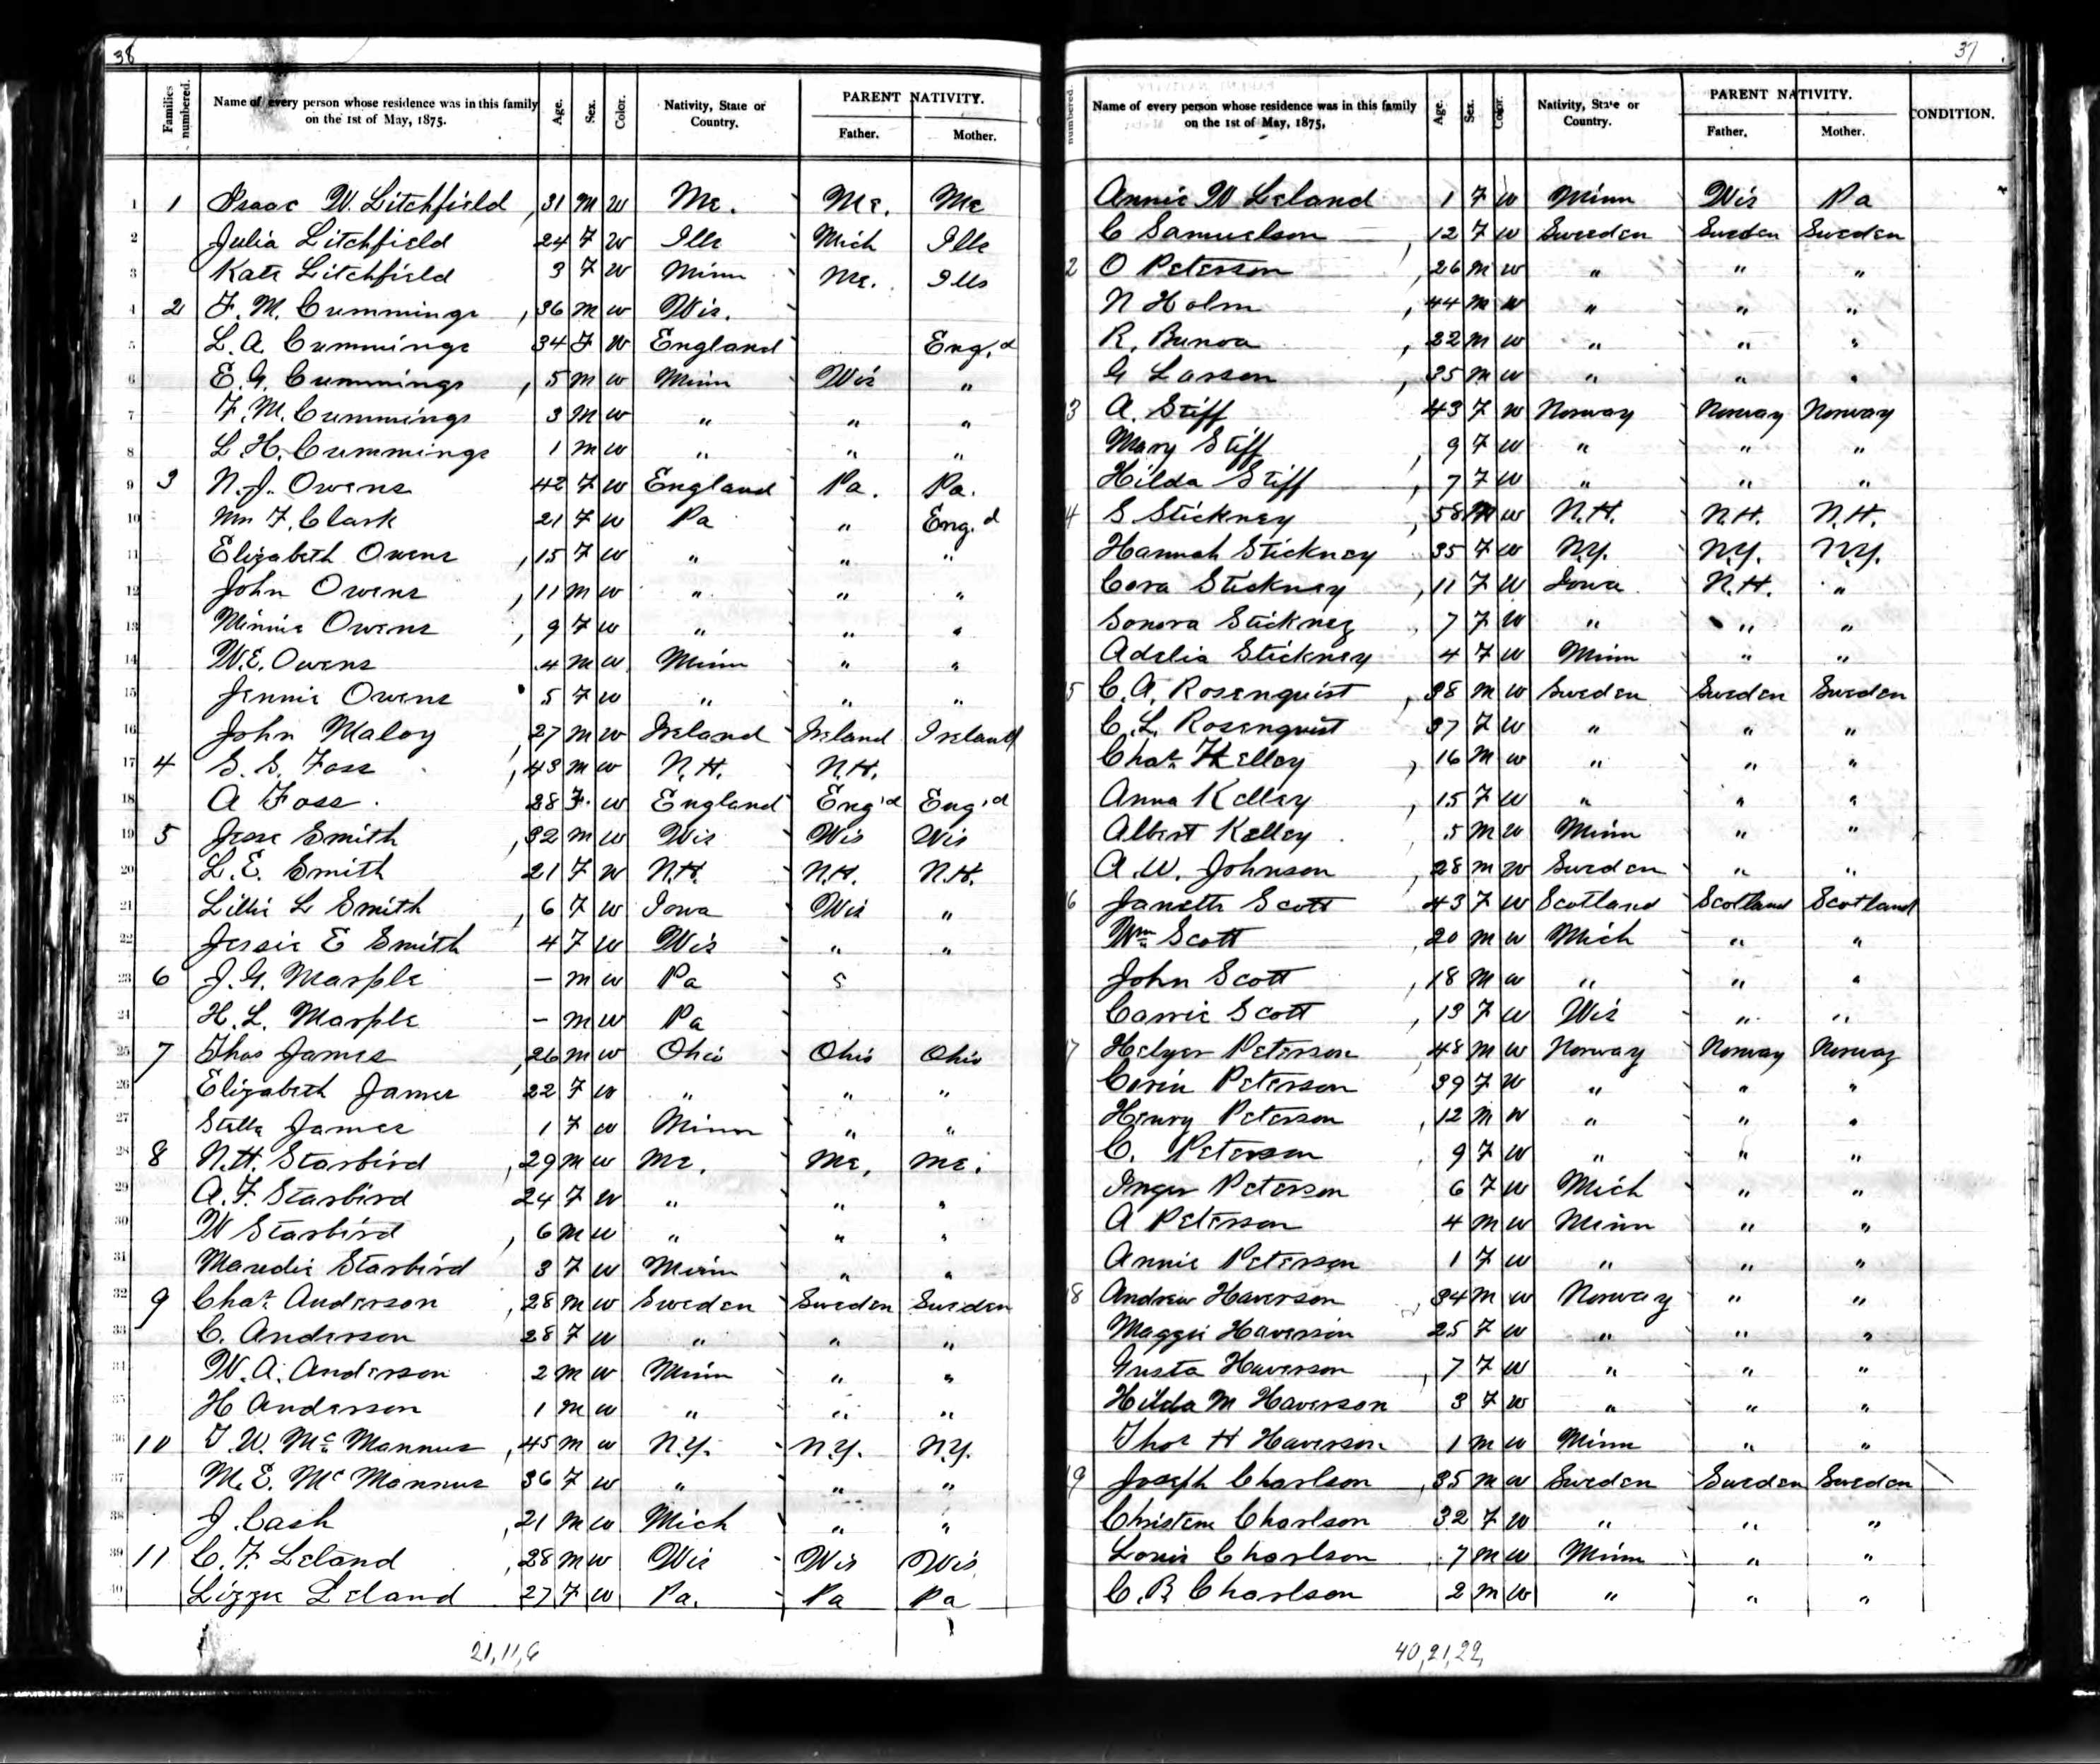 38
Families numbered. Name of every person whose residence was in this family on the 1st of May, 1875. Age. Sex. Color. Nativity, State or Country. PARENT NATIVITY. Father. Mother.
1 1 Isaac W. Litchfield 31 M W Me. Me. Me
2 Julia Litchfield 24 F W Ills Mich Ills
3 Kate Litchfield 3 F W Minn Me. Ills
4 2 F. M. Cummings 36 M W Wis.
5 L. A. Cummings 34 F W England Eng.d
6 E. G. Cummings 5 M W Minn Wis "
7 F. M. Cummings 3 M W " " "
8 L. H. Cummings 1 M W " " "
9 3 N. J. Owens 42 F W England Pa. Pa.
10 F. Clark 21 F W Pa " Eng.d
11 Elizabeth Owens 15 F W " " "
12 John Owens 11 M W " " "
13 Minnie Owens 9 F W " " "
14 W. E. Owens 4 M W Minn " "
15 Jennie Owens 5 F W " " "
16 John Maloy 27 M W Ireland Ireland Ireland
17 4 S. S. Foss 43 M W N.H. N.H.
18 A Foss 28 F W England Eng'd Eng'd
19 5 Jesse Smith 32 M W Wis Wis Wis
20 L. E. Smith 21 F W N.H. N.H. N.H.
21 Lillie L Smith 6 F W Iowa Wis "
22 Jessie E Smith 4 F W Wis " "
23 6 J. G. Marple – M W Pa
24 H. L. Marple – M W Pa
25 7 Thos James 26 M W Ohio Ohio Ohio
26 Elizabeth James 22 F W " " "
27 Stella James 1 F W Minn " "
28 8 N. H. Starbird 29 M W Me. Me. Me.
29 A. F. Starbird 24 F W " " "
30 W Starbird 6 M W " " "
31 Starbird 3 F W Minn " "
32 9 Chas. Anderson 28 M W Sweden Sweden Sweden
33 C. Anderson 28 F W " " "
34 W. A. Anderson 2 M W Minn " "
35 H Anderson 1 M W " " "
36 10 T. W. Mc Mannus 45 M W N.Y. N.Y. N.Y.
37 M. E. Mc Mannus 36 F W " " "
38 J. Cash 21 M W Mich " "
39 11 C. F. Leland 28 M W Wis Wis Wis
40 Lizzie Leland 27 F W Pa. Pa Pa
21, 11, 6
37
numbered. Name of every person whose residence was in this family on the 1st of May, 1875, Age. Sex. Color. Nativity, State or Country. PARENT NATIVITY. Father. Mother. CONDITION.
Annie W Leland 1 F W Minn Wis Pa
C Samuelson 12 F W Sweden Sweden Sweden
2 O Peterson 26 M W " " "
N Holm 44 M W " " "
R. 22 M W " " "
G Larson 35 M W " " "
3 A. Stiff 43 F W Norway Norway Norway
Mary Stiff 9 F W " " "
Hilda Stiff 7 F W " " "
4 S Stickney 58 M W N.H. N.H. N.H.
Hannah Stickney 35 F W N.Y. N.Y. N.Y.
Cora Stickney 11 F W Iowa N.H. "
Sonora Stickney 7 F W " " "
Adelia Stickney 4 F W Minn " "
5 C. A. Rosenquist 38 M W Sweden Sweden Sweden
C. L. Rosenquist 37 F W " " "
Chas. Kelley 16 M W " " "
Anna Kelley 15 F W " " "
Albert Kelley 5 M W Minn " "
A. W. Johnson 28 M W Sweden " "
6 Janette Scott 43 F W Scotland Scotland Scotland
Wm Scott 20 M W Mich " "
John Scott 18 M W " " "
Carrie Scott 13 F W Wis " "
7 Helger Peterson 48 M W Norway Norway Norway
Peterson 39 F W " " "
Henry Peterson 12 M W " " "
C. Peterson 9 F W " " "
Inger Peterson 6 F W Mich " "
A Peterson 4 M W Minn " "
Annie Peterson 1 F W " " "
18 Andrew Haverson 34 M W Norway " "
Maggie Haverson 25 F W " " "
Gusta Haverson 7 F W " " "
Hilda M Haverson 3 F W " " "
Thos H Haverson 1 M W Minn " "
19 Joseph Charlson 35 M W Sweden Sweden Sweden
Christena Charlson 32 F W " " "
Louis Charlson 7 M W Minn " "
C. B. Charlson 2 M W " " "
40, 21, 22,